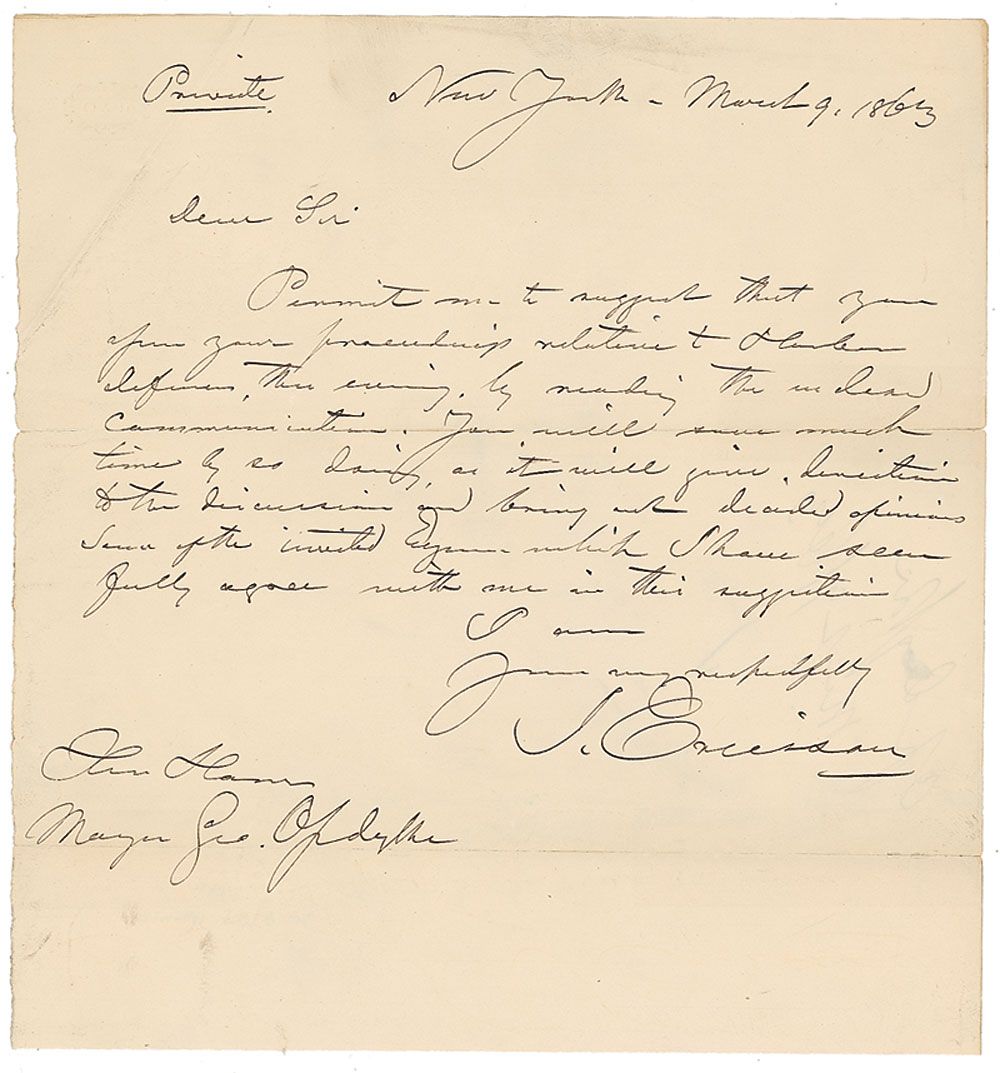 Private. New York - March 9, 1863
Dear Sir
Permit me to suggest that you
open your proceedings relative to Harbor
defences, this evening, by reading the inclosed
communication. You will save much
time by so doing, as it will give direction
to the discussion and bring out decided opinions
Some of the invited which I have seen
fully agree with me in this suggestion
I am
Yours very respectfully
J. Ericsson
Mayor Geo. Opdyke